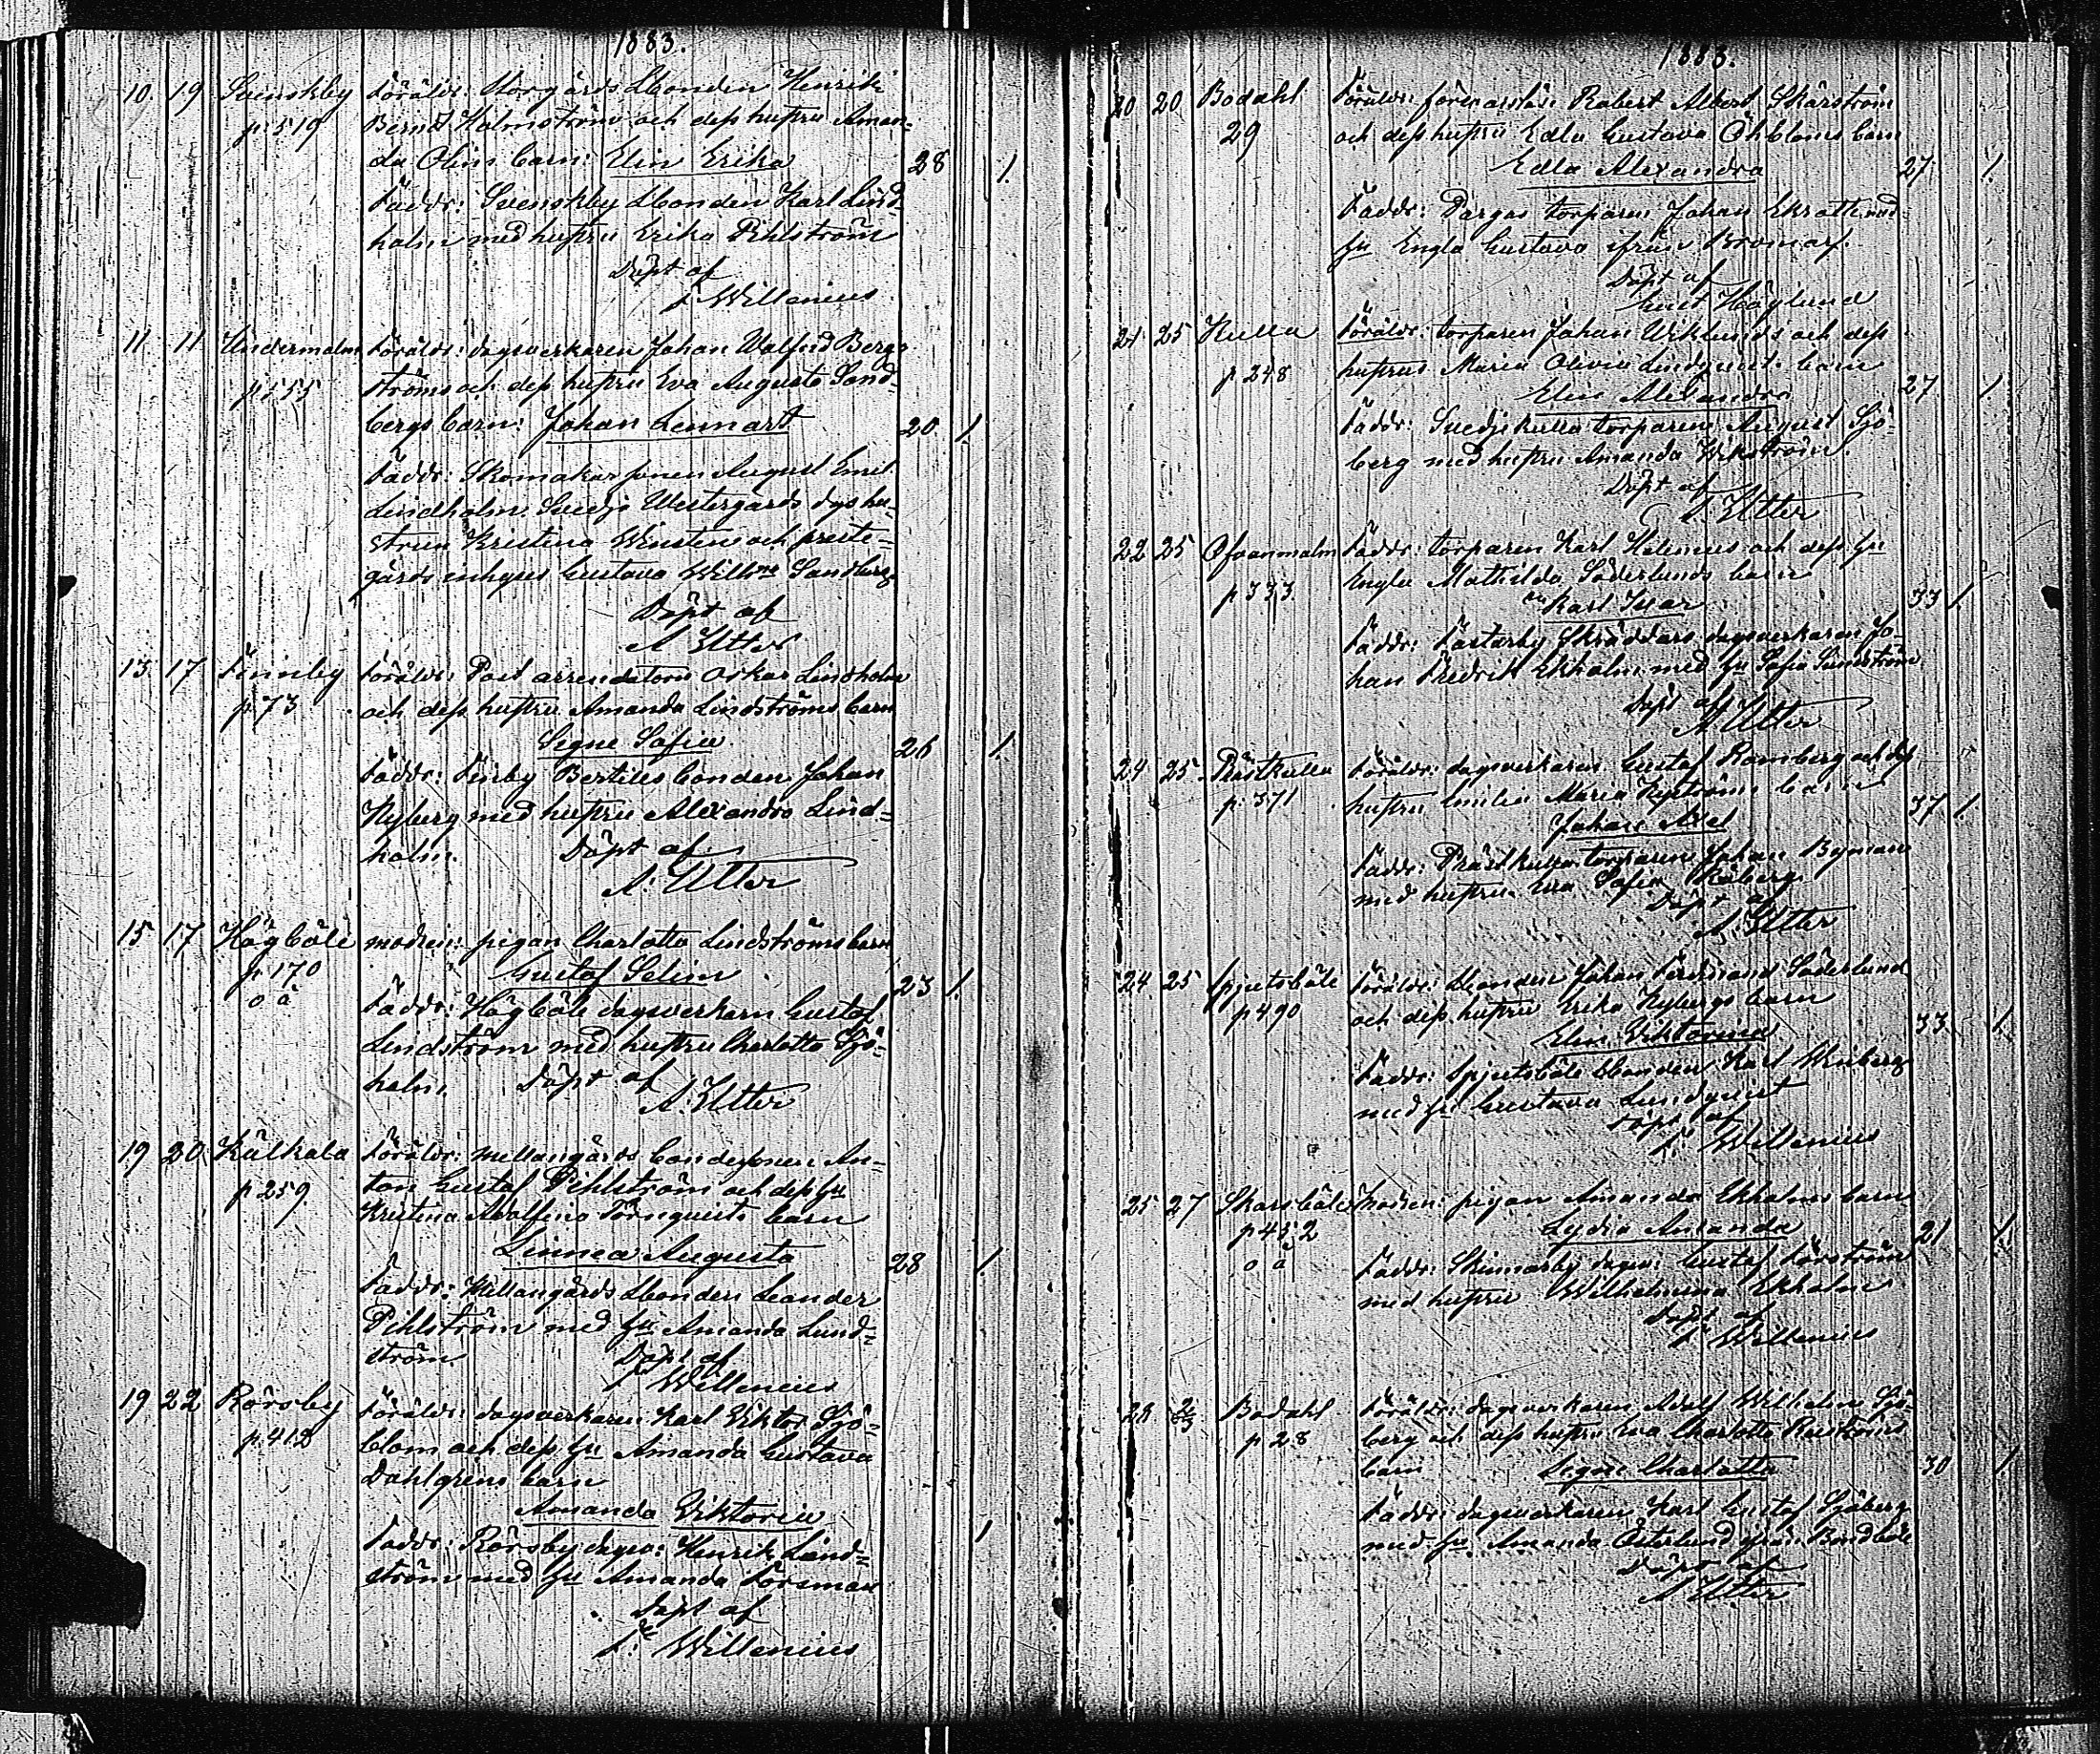 1883.
10. 19 Svenskby Föräldr: Storgårds bonden Henrik
p 519 Bernd Holmström och dess hustru Aman-
da Olins barn: Elin Erika 28 1.
Faddr: Svenskby bonden Karl Lind-
holm med hustru Erika Pihlström
Döpt af
F. Willenius
11 11 Undermalm Föräldr: dagsverkaren Johan Walfrid Berg-
p 555 ströms och dess hustru Eva Augusta Sand-
bergs barn: Johan Lennart 20 1.
Faddr: Skomakar sonen August Emil
Lindholm, Svedja Westergårds dgs hu-
strun Kristina Winsten och preste-
gårds inhyses Gustava Willma Sandberg
Döpt af
A Utter
13 17 Finnby Föräldr: Post arrendatorn Oskar Lindholm
p 73 och dess hustru Amanda Lindströms barn
Signe Sofia 26 1.
Faddr: Finby Bertills bonden Johan
Nyberg med hustru Alexandra Lind-
holm. Döpt af
A. Utter
15 17 Högböle modren: pigan Charlotta Lindströms barn
p 170 Gustaf Selim 23 1.
o ä
Faddr: Högböle dagsverkarn Gustaf
Lindström med hustru Charlotta Sjö-
holm. Döpt af
A. Utter
19 20 Kälkala Föräldr: Mellangårds bondesonen An-
p 259. ton Gustaf Pihlström och dess hu
Kristina Adolfina Törnquists barn
Linnea Augusta 28 1.
Faddr: Mellangårds bonden Leander
Pihlström med hu Amanda Lund-
ström. Döpt af
F. Willenius
19 22 Rörsby Föräldr: dagsverkaren Karl Viktor Sjö-
p. 412 blom och dess hu Amanda Gustava
Dahlgrens barn
Amanda Viktoria 1
Faddr: Rörsby dagsv: Henrik Lind-
ström med hu Amanda Forsman
Döpt af
F. Willenius
1883.
20 20 Bodahl Föräldr: Robert Albert Skärström
29 och dess hustru Edla Gustava Öhbloms barn
Edla Alexandra 27 1.
Faddr: torparen Johan med
hu Engla Gustava ifrån Bromarf.
Döpt af
Höglund
21 25 Kulla Föräldr: torparen Johan Wiklunds och dess
p 248 hustrus Maria Olivia Lindquist barn
Elin Alexandra 27 1.
Faddr: Svedjekulla torparen August Sjö-
berg med hustru Amanda Wikström.
Döpt af
A. Utter
22 25 Ofvanmalm Faddr: torparen Karl Helenius och dess hu
p 333 Engla Mathilda Söderlunds barn
Karl Ivar 33 1.
Faddr: Västerby Skräddars dagsverkaren Jo-
han Fredrik Ekholm med hu Sofia Sundström
Döpt af
A Utter
24 25 Prästkulla Föräldr: dagsverkaren Gustaf Romberg och dess
p. 371 hustru Emilia Maria Nyströms barn
Johan Axel 37 1.
Faddr: Prästkulla torparen Johan Byman
med hustru Eva Sofia
Döpt af
A. Utter
24 25 Spjutsböle Föräldr: bonden Johan Ferdinand Söderlund
p 490 och dess hustru Erika Nybergs barn
Elin Viktorina 33 1.
Faddr: Spjutsböle bonden Karl Winberg
med hu Gustava Lundquist
Döpt af
F. Willenius
25 27 Skarsböle modren: pigan Amanda Ekholms barn
p 452 Lydia Amanda 21 1.
o ä Faddr: Skinnarby dagsv: Gustaf
med hustru Wilhelmina Ekholm
Döpt af
F. Willenius
28 2/3 Bodahl Föräldr: dagsverkaren Adolf Wilhelm Sjö-
p 28 berg och dess hustru Eva Charlotta
barn Signe Charlotta 30 1.
Faddr: dagsverkaren Karl Gustaf Sjöberg
med hu Amanda Österlund från
Döpt af
A Utter